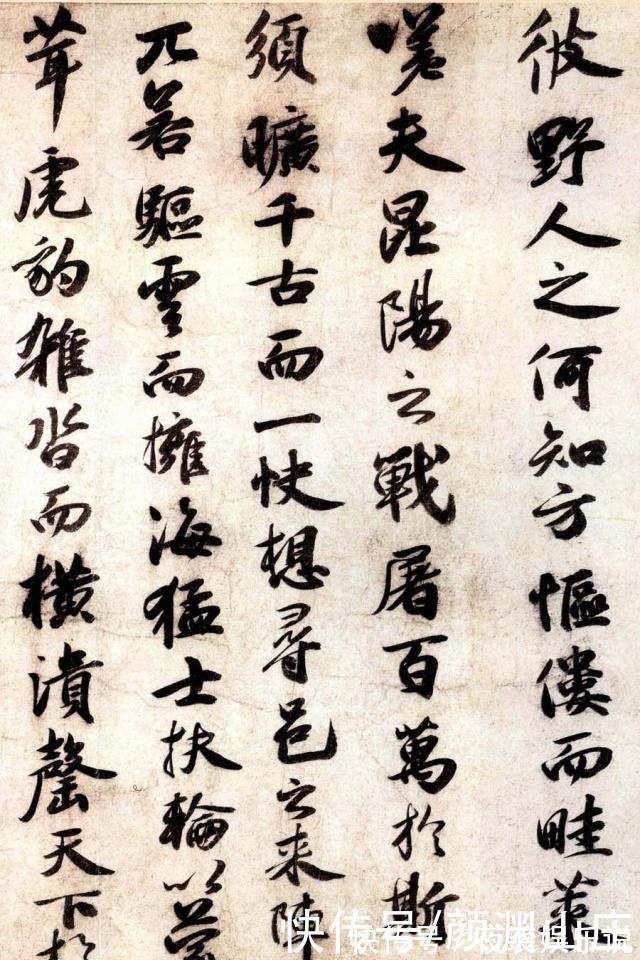 彼野人之何知方傴僂而畦
嗟夫昆陽之戰屠百萬於斯
須曠千古而一快想尋邑之来陣
兀若驅雲而擁海猛士扶輪以蒙
茸虎豹雜沓而橫潰罄天下於
快传号/颜渊